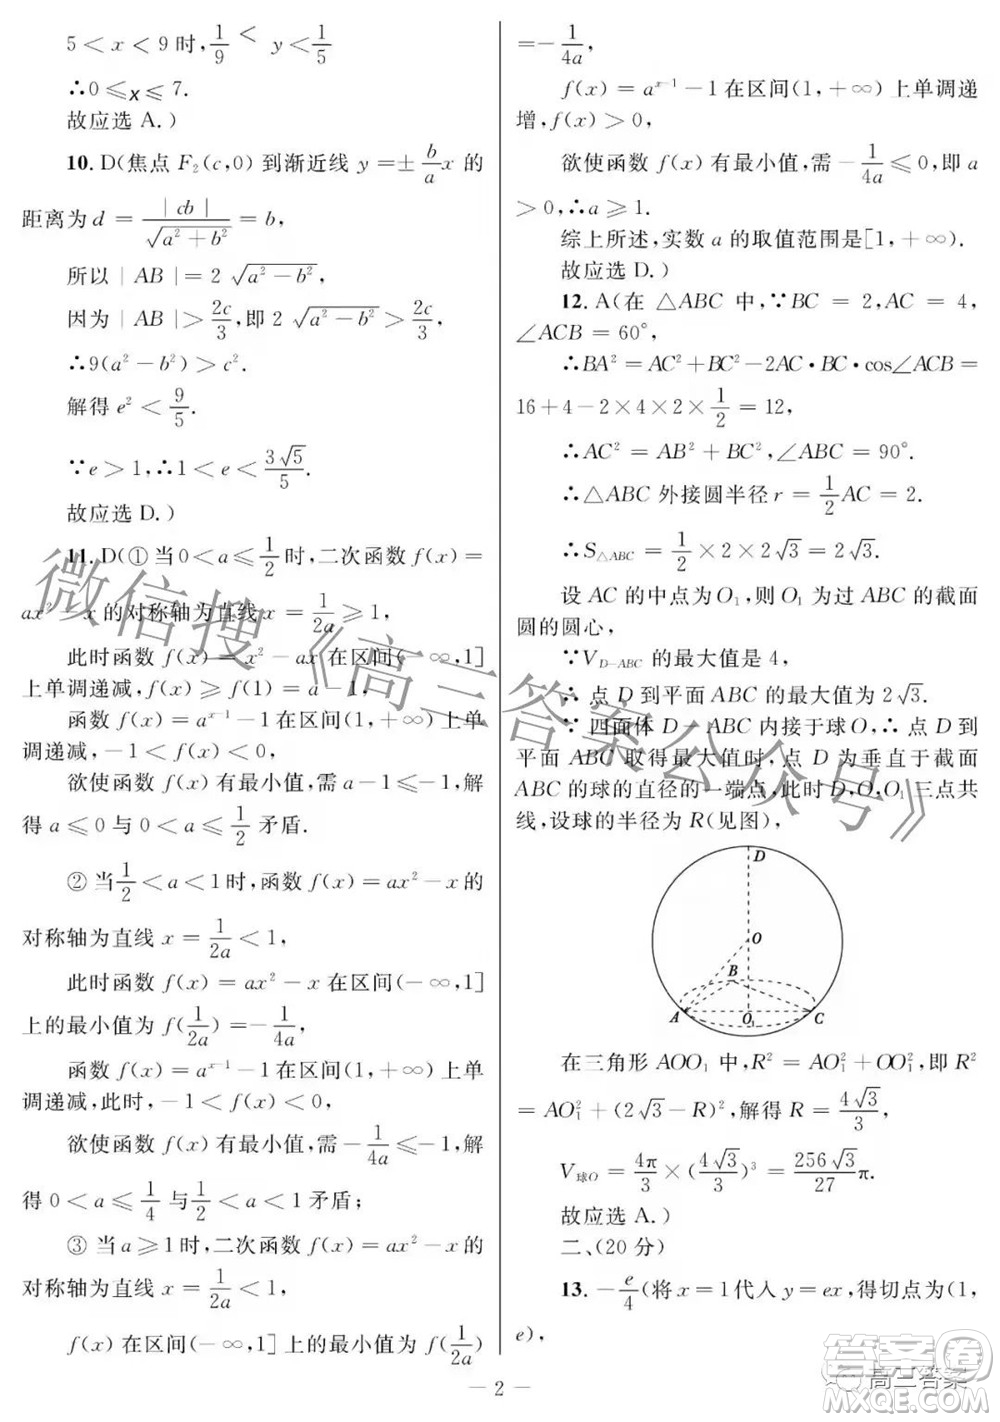 5 < x < 9 时, 1/9 < y < 1/5
∴0 ⩽ x ⩽ 7.
故应选 A.)
10. D(焦点 F₂(c,0) 到渐近线 y = ± b/a x 的
距离为 d = |cb| / √(a² + b²) = b,
所以 | AB | = 2 √(a² − b²),
因为 | AB | > 2c/3, 即 2 √(a² − b²) > 2c/3,
∴9(a² − b²) > c².
解得 e² < 9/5.
∵e > 1, ∴1 < e < 3√5/5.
故应选 D.)
11. D(① 当 0 < a ⩽ 1/2 时, 二次函数 f(x) =
ax² − x 的对称轴为直线 x = 1/2a ⩾ 1,
此时函数 f(x) = x² − ax 在区间(− ∞,1]
上单调递减, f(x) ⩾ f(1) = a − 1,
函数 f(x) = aˣ⁻¹ − 1 在区间(1, + ∞) 上单
调递减, − 1 < f(x) < 0,
欲使函数 f(x) 有最小值, 需 a − 1 ⩽− 1, 解
得 a ⩽ 0 与 0 < a ⩽ 1/2 矛盾.
② 当 1/2 < a < 1 时, 函数 f(x) = ax² − x 的
对称轴为直线 x = 1/2a < 1,
此时函数 f(x) = ax² − x 在区间(− ∞,1]
上的最小值为 f(1/2a) =− 1/4a,
函数 f(x) = aˣ⁻¹ − 1 在区间(1, + ∞) 上单
调递减, 此时, − 1 < f(x) < 0,
欲使函数 f(x) 有最小值, 需 − 1/4a ⩽− 1, 解
得 0 < a ⩽ 1/4 与 1/2 < a < 1 矛盾;
③ 当 a ⩾ 1 时, 二次函数 f(x) = ax² − x 的
对称轴为直线 x = 1/2a < 1,
f(x) 在区间(− ∞,1] 上的最小值为 f(1/2a)
=− 1/4a,
f(x) = aˣ⁻¹ − 1 在区间(1, + ∞) 上单调递
增, f(x) > 0,
欲使函数 f(x) 有最小值, 需 − 1/4a ⩽ 0, 即 a
> 0, ∴a ⩾ 1.
综上所述, 实数 a 的取值范围是[1, + ∞).
故应选 D.)
12. A(在 △ABC 中, ∵BC = 2, AC = 4,
∠ACB = 60°,
∴BA² = AC² + BC² − 2AC • BC • cos∠ACB =
16 + 4 − 2 × 4 × 2 × 1/2 = 12,
∴AC² = AB² + BC², ∠ABC = 90°.
∴△ABC 外接圆半径 r = 1/2 AC = 2.
∴S△ABC = 1/2 × 2 × 2√3 = 2√3.
设 AC 的中点为 O₁, 则 O₁ 为过 ABC 的截面
圆的圆心,
∵V D−ABC 的最大值是 4,
∴ 点 D 到平面 ABC 的最大值为 2√3.
∵ 四面体 D − ABC 内接于球 O, ∴ 点 D 到
平面 ABC 取得最大值时, 点 D 为垂直于截面
ABC 的球的直径的一端点, 此时 D, O, O₁ 三点共
线, 设球的半径为 R(见图),
D
O
B
A
O₁
C
在三角形 AOO₁ 中, R² = AO₁² + OO₁², 即 R²
= AO₁² + (2√3 − R)², 解得 R = 4√3/3,
V球O = 4π/3 × (4√3/3)³ = 256√3/27 π.
故应选 A.)
二、(20 分)
13. − e/4 (将 x = 1 代入 y = ex, 得切点为(1,
e),
— 2 —
微信搜《高三答案公众号》
答案圈
高三答案